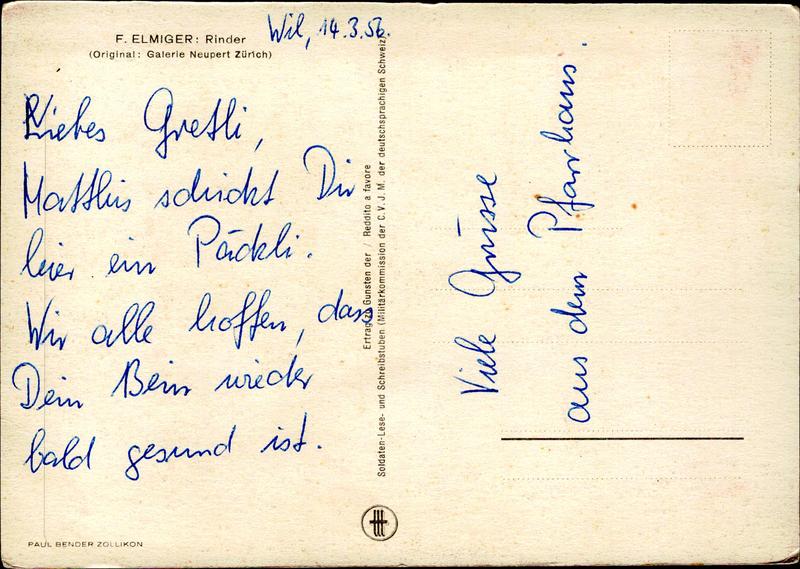 F. ELMIGER: Rinder
(Original: Galerie Neupert Zürich)
Wil, 14.3.56.
Liebes Gretli,
Matthis schickt Dir
hier ein Päckli.
Wir alle hoffen, dass
Dein Bein wieder
bald gesund ist.
PAUL BENDER ZOLLIKON
Ertrag zu Gunsten der / Reddito a favore
Soldaten-Lese- und Schreibstuben (Militärkommission der C.V.J.M. der deutschsprachigen Schweiz)
Viele Grüsse
aus dem Pfarrhaus.